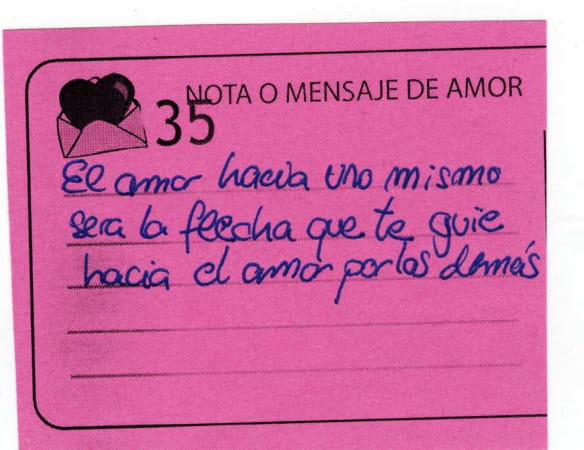 NOTA O MENSAJE DE AMOR
35
El amor hacia uno mismo
sera la fleecha que te guie
hacia el amor por los demás